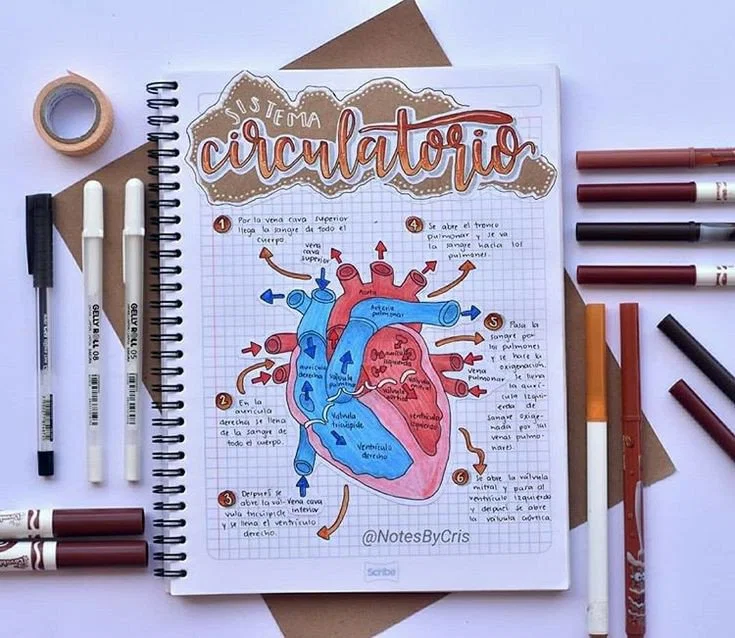 SISTEMA
circulatorio
1 Por la vena cava superior
llega la sangre de todo el
cuerpo.
vena
cava
superior
4 Se abre el tronco
pulmonar y se va
la sangre hacia los
pulmones.
Aorta
Arteria
pulmonar
aurícula
izquierda
aurícula
derecha
válvula
pulmonar
válvula
mitral
válvula
aórtica
Válvula
tricúspide
ventrículo
izquierdo
Ventrículo
derecho
5 Pasa la
sangre por
los pulmones
y se hace la
oxigenación.
Se llena
la aurí-
cula izqui-
erda de
sangre oxige-
nada por las
venas pulmo-
nares.
vena
pulmonar
2 En la
aurícula
derecha se llena
de la sangre de
todo el cuerpo.
3 Después se
abre la vál-
vula tricúspide
y se llena el ventrículo
derecho.
Vena cava
inferior
6 Se abre la válvula
mitral y pasa al
ventrículo izquierdo
y después se abre
la válvula aórtica.
@NotesByCris
Scribe
GELLY ROLL 08
GELLY ROLL 05